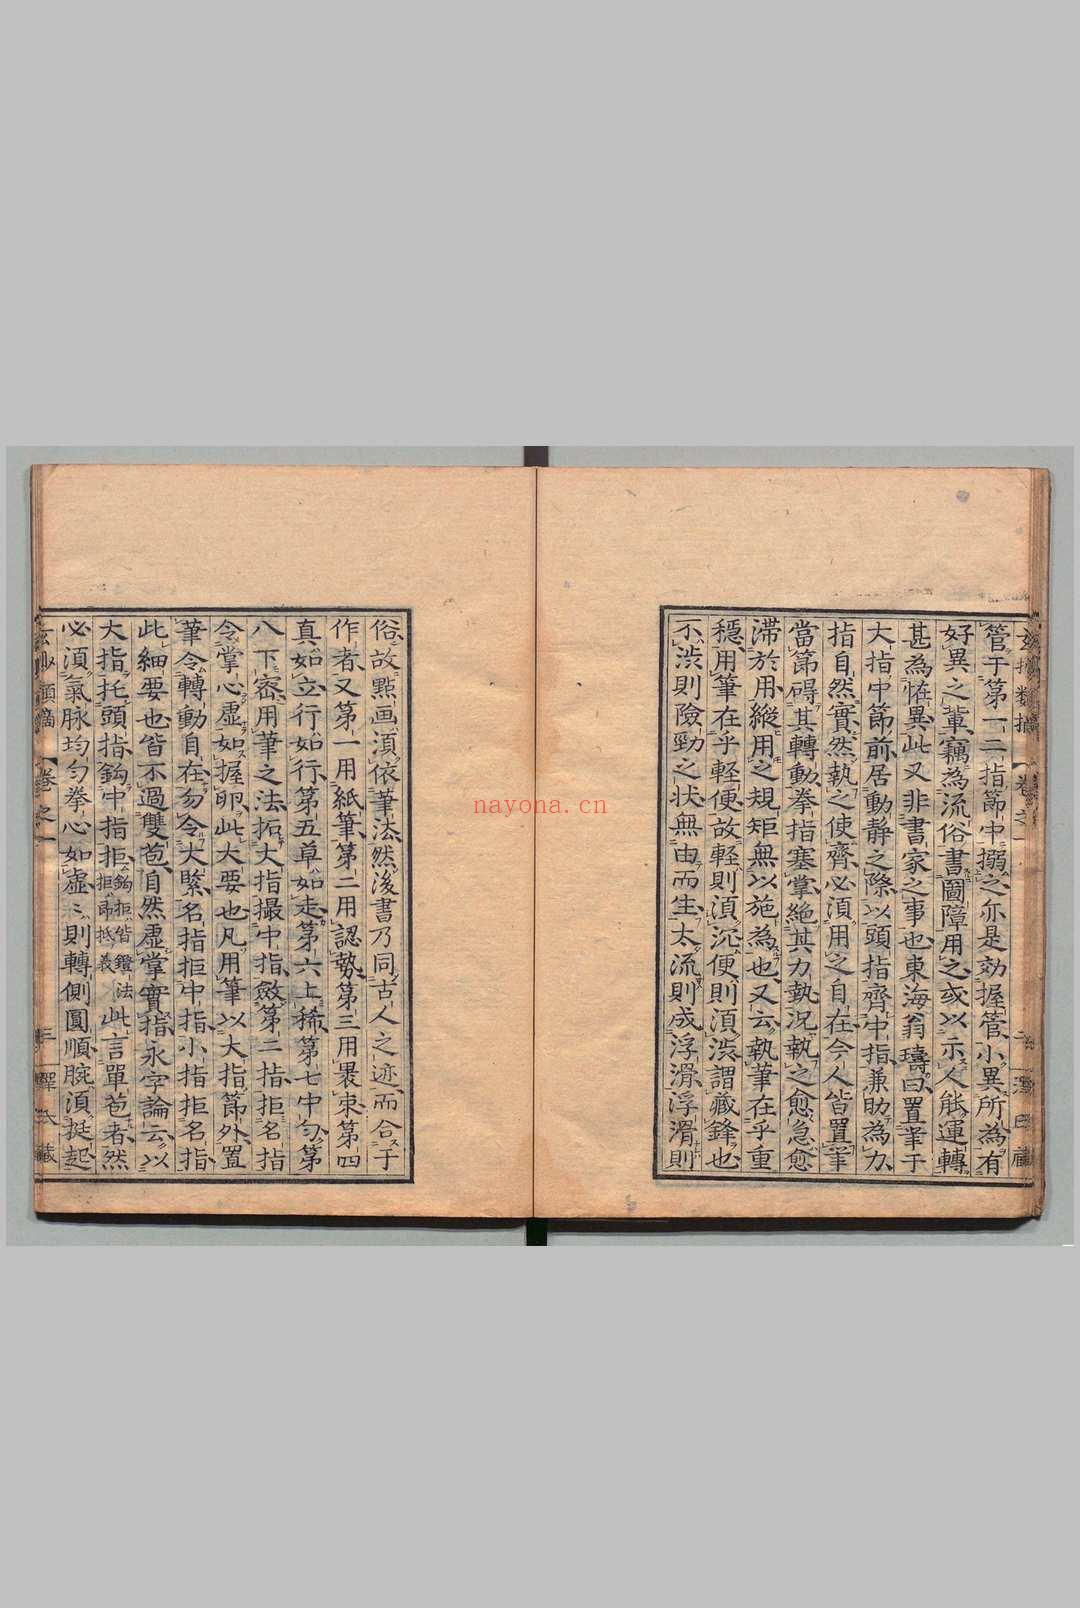 管于第一二指節中搦之亦是効握管小異所為有
好異之輩竊為流俗書圖障用之或以示人能運轉
甚為恠異此又非書家之事也東海翁璹曰置筆于
大指中節前居動靜之際以頭指齊中指兼助為力
指自然實然執之使齊必須用之自在今人皆置筆
當節碍其轉動拳指塞掌絶其力勢況執之愈急愈
滞於用縦用之規矩無以施為也又云執筆在乎重
穩用筆在乎軽便故軽則湏沉便則湏渋謂藏鋒也
不渋則險勁之状無由而生太流則成浮滑浮滑則
俗故㸃画湏依筆法然後書乃同古人之迹而合于
作者又第一用紙筆第二用認勢第三用裹束第四
真如立行如行第五草如走第六上稀第七中匀第
八下密用筆之法拓大指撮中指斂第二指拒名指
令掌心虚如握卵此大要也凡用筆以大指節外置
筆令轉動自在勿令大緊名指拒中指小指拒名指
此細要也皆不過雙苞自然虚掌實指永字論云以
大指托頭指鈎中指拒鈎拒皆鐙法
拒即抵義此言單苞者然
必湏氣脉均匀拳心如虚〻則轉側圓順腕湏挺起
卷之一
nayona.cn